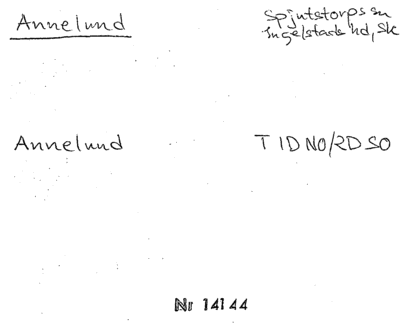 Annelund
Spjutstorps sn
Ingelstads hd, Sk
Annelund
T ID NO/2D SO
Nr 14144